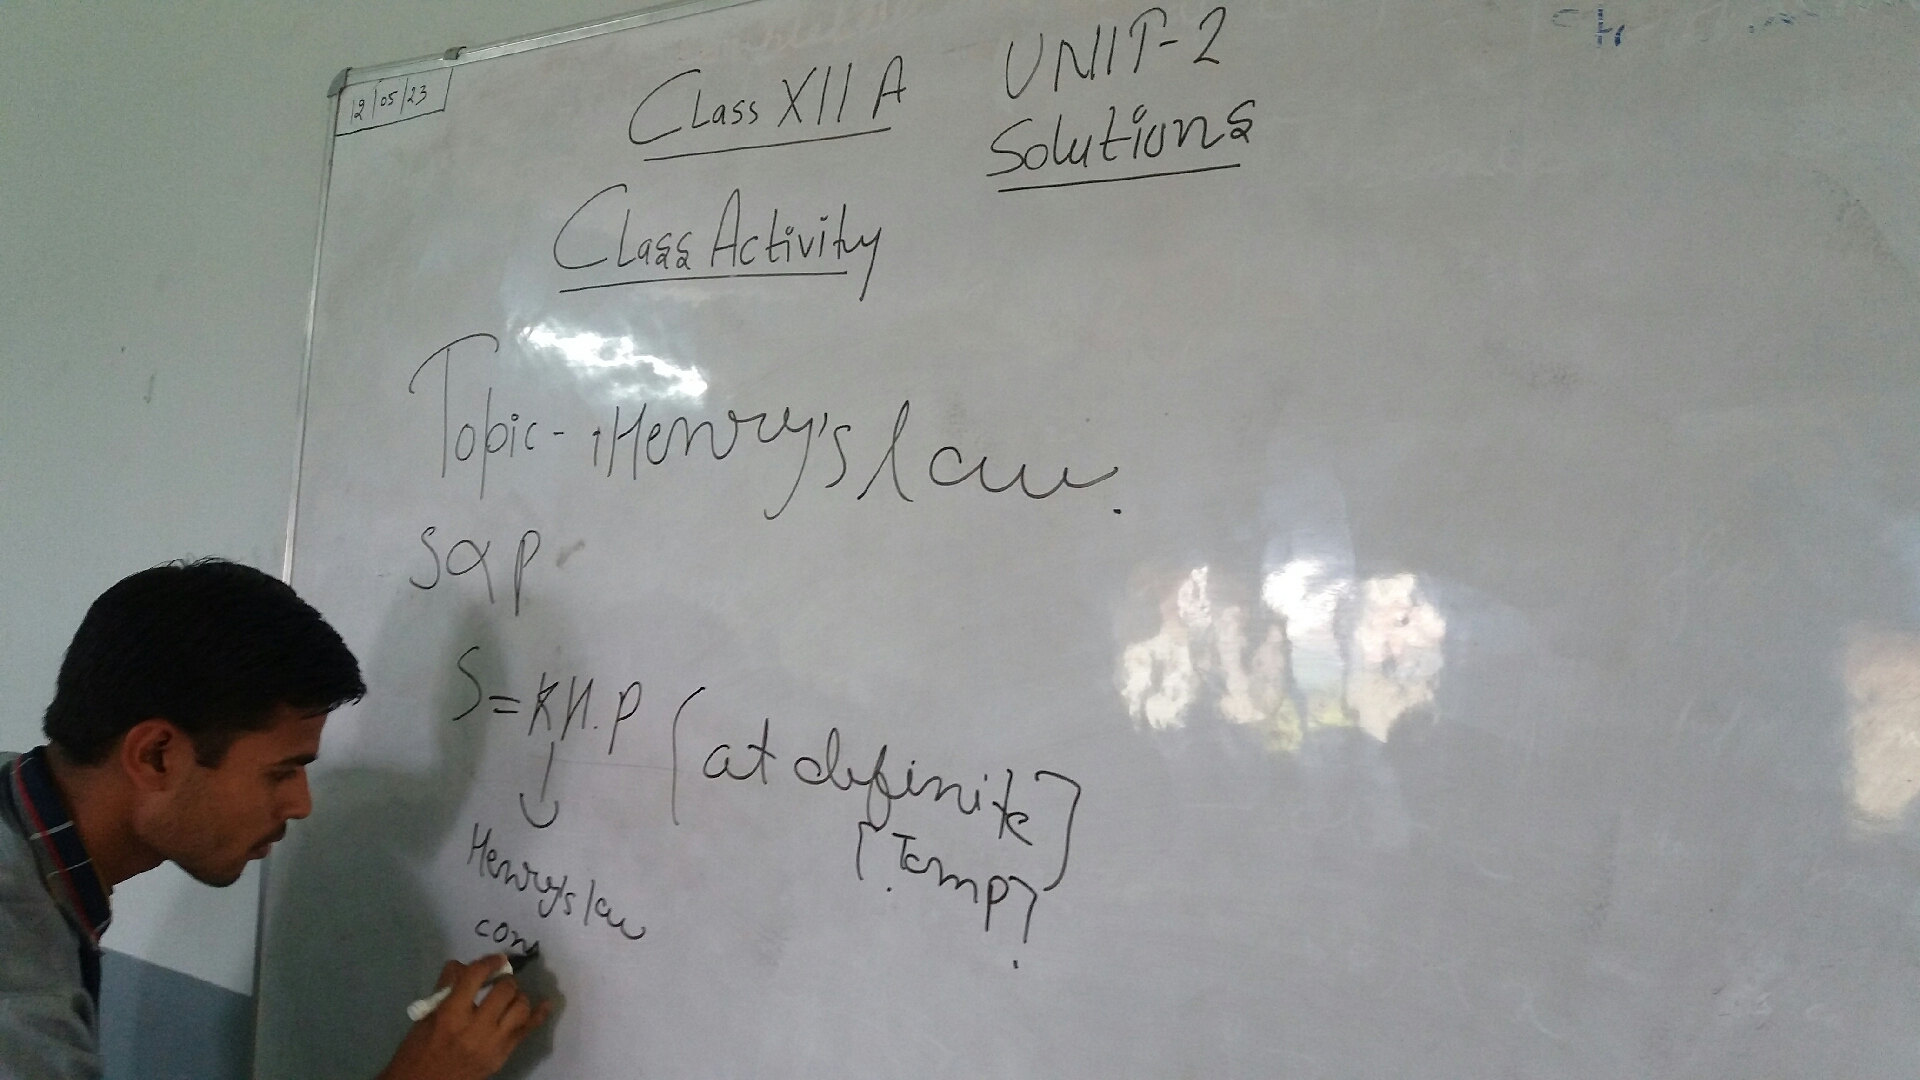 12/05/23
Class XII A
UNIT-2
Solutions
Class Activity
Topic- Henry's law.
S α p
S = KH.P (at definite
[Temp]
Henry's law
con